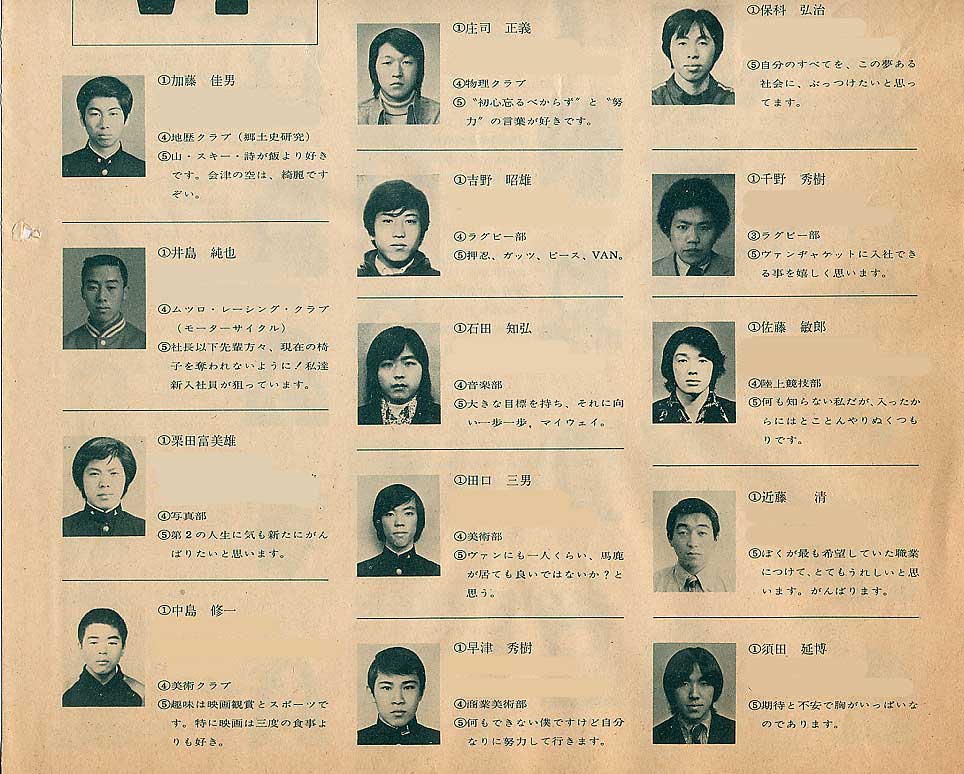 ①加藤 佳男
④地歴クラブ(郷土史研究)
⑤山・スキー・詩が飯より好き
です。会津の空は、綺麗です
ぞい。
①井島 純也
④ムツロ・レーシング・クラブ
(モーターサイクル)
⑤社長以下先輩方々、現在の椅
子を奪われないように!私達
新入社員が狙っています。
①栗田富美雄
④写真部
⑤第2の人生に気も新たにがん
ばりたいと思います。
①中島 修一
④美術クラブ
⑤趣味は映画観賞とスポーツで
す。特に映画は三度の食事よ
りも好き。
①庄司 正義
④物理クラブ
⑤〝初心忘るべからず〟と〝努
力〟の言葉が好きです。
①吉野 昭雄
④ラグビー部
⑤押忍、ガッツ、ピース、VAN。
①石田 知弘
④音楽部
⑤大きな目標を持ち、それに向
い一歩一歩，マイウェイ。
①田口 三男
④美術部
⑤ヴァンにも一人くらい、馬鹿
が居ても良いではないか?と
思う。
①早津 秀樹
④商業美術部
⑤何もできない僕ですけど自分
なりに努力して行きます。
①保科 弘治
⑤自分のすべてを、この夢ある
社会に、ぶっつけたいと思っ
てます。
①千野 秀樹
③ラグビー部
⑤ヴァンヂャケットに入社でき
る事を嬉しく思います。
①佐藤 敏郎
④陸上競技部
⑤何も知らない私だが、入ったか
らにはとことんやりぬくつも
りです。
①近藤 清
⑤ぼくが最も希望していた職業
につけて、とてもうれしいと思
います。がんばります。
①須田 延博
⑤期待と不安で胸がいっぱいな
のであります。